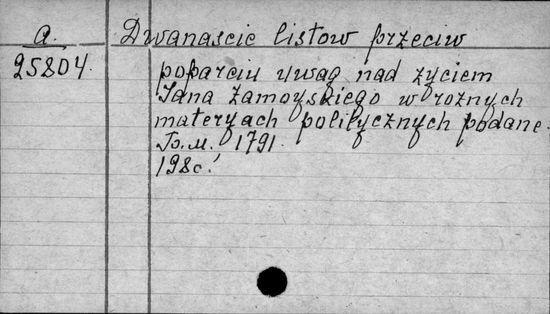 a. Dwanascie listow przeciw
25804. poparciu uwag nad zyciem
Jana Zamoyskiego w roznych
materyach politycznych podane.
To.м. 1791.
198с.